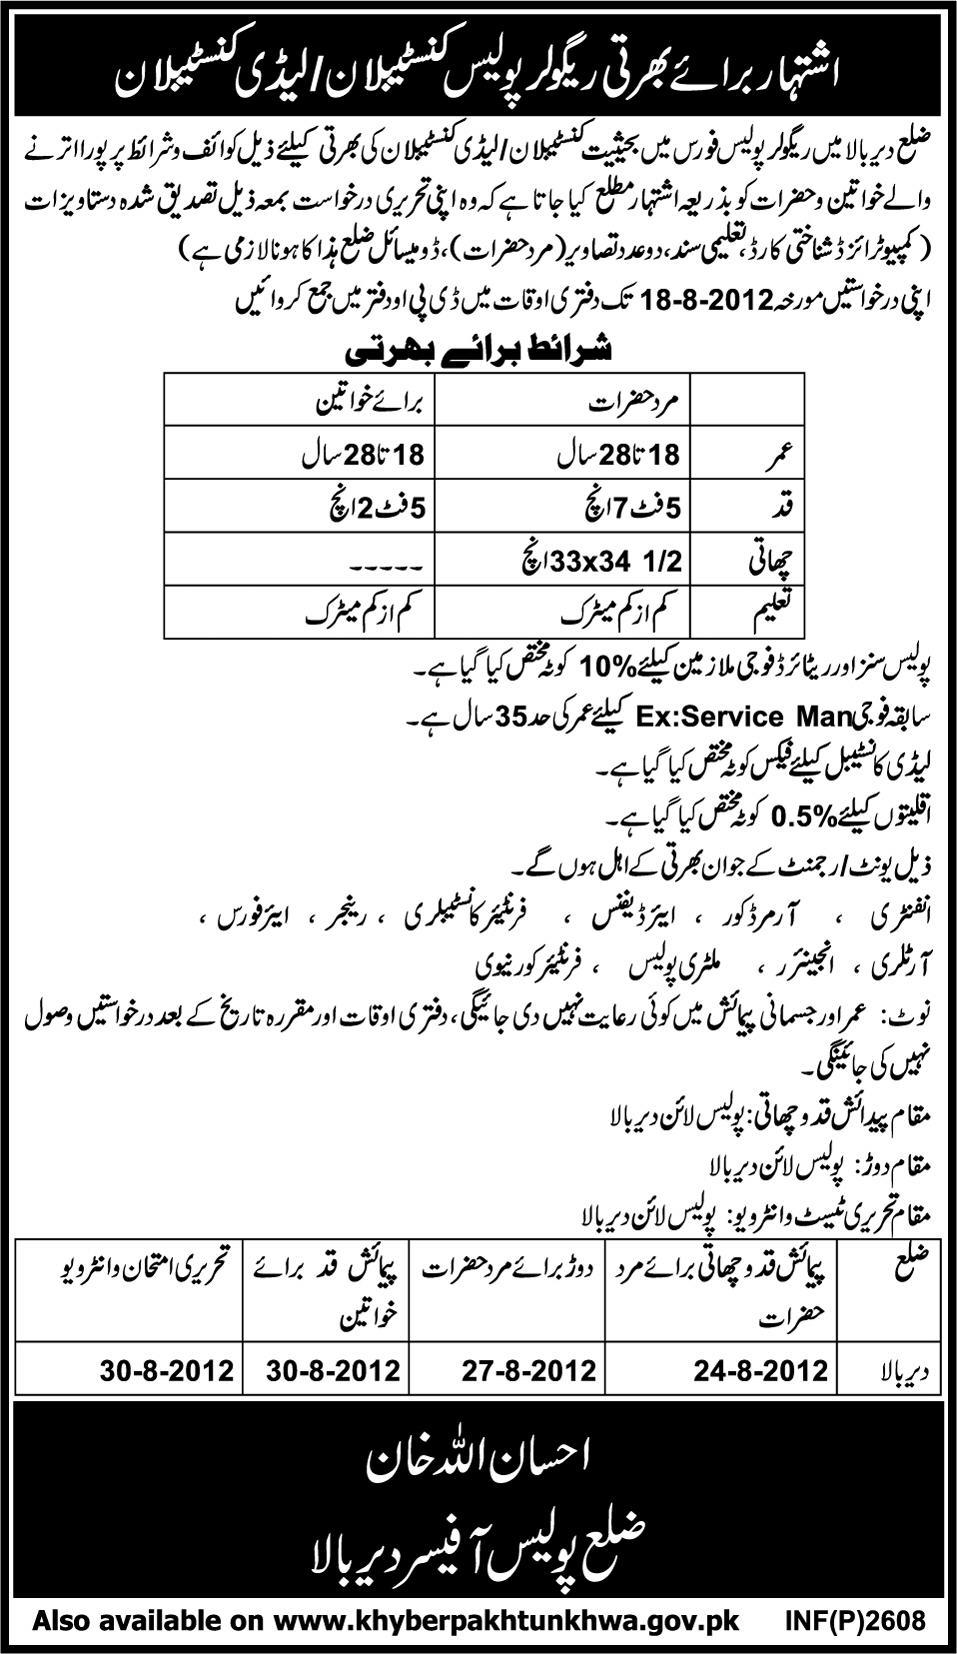 اشتہار برائے بھرتی ریگولر پولیس کنسٹیبلان/لیڈی کنسٹیبلان
ضلع دیر بالا میں ریگولر پولیس فورس میں بحیثیت کنسٹیبلان/لیڈی کنسٹیبلان کی بھرتی کیلئے ذیل کوائف و شرائط پر پورا اترنے
والے خواتین و حضرات کو بذریعہ اشتہار مطلع کیا جاتا ہے کہ وہ اپنی تحریری درخواست بمعہ ذیل تصدیق شدہ دستاویزات
(کمپیوٹرائزڈ شناختی کارڈ، تعلیمی سند، دو عدد تصاویر (مرد حضرات)، ڈومیسائل ضلع ھذا کا ہونا لازمی ہے)
اپنی درخواستیں مورخہ 18-8-2012 تک دفتری اوقات میں ڈی پی او دفتر میں جمع کروائیں
شرائط برائے بھرتی
مرد حضرات برائے خواتین
عمر 18 تا 28 سال 18 تا 28 سال
قد 5 فٹ 7 انچ 5 فٹ 2 انچ
چھاتی 33x34 1/2 انچ -----
تعلیم کم از کم میٹرک کم از کم میٹرک
پولیس سنز اور ریٹائرڈ فوجی ملازمین کیلئے 10% کوٹہ مختص کیا گیا ہے۔
سابقہ فوجی Ex:Service Man کیلئے عمر کی حد 35 سال ہے۔
لیڈی کانسٹیبل کیلئے فیکس کوٹہ مختص کیا گیا ہے۔
اقلیتوں کیلئے 0.5% کوٹہ مختص کیا گیا ہے۔
ذیل یونٹ/رجمنٹ کے جوان بھرتی کے اہل ہوں گے۔
انفنٹری ، آرمرڈ کور ، ایئر ڈیفنس ، فرنٹیئر کانسٹیبلری ، رینجر ، ایئر فورس ،
آرٹلری ، انجینئر ، ملٹری پولیس ، فرنٹیئر کور نیوی
نوٹ: عمر اور جسمانی پیمائش میں کوئی رعایت نہیں دی جائیگی، دفتری اوقات اور مقررہ تاریخ کے بعد درخواستیں وصول
نہیں کی جائینگی۔
مقام پیدائش قد و چھاتی: پولیس لائن دیر بالا
مقام دوڑ: پولیس لائن دیر بالا
مقام تحریری ٹیسٹ و انٹرویو: پولیس لائن دیر بالا
ضلع پیمائش قد و چھاتی برائے مرد حضرات دوڑ برائے مرد حضرات پیمائش قد برائے خواتین تحریری امتحان و انٹرویو
دیر بالا 24-8-2012 27-8-2012 30-8-2012 30-8-2012
احسان اللہ خان
ضلع پولیس آفیسر دیر بالا
Also available on www.khyberpakhtunkhwa.gov.pk INF(P)2608